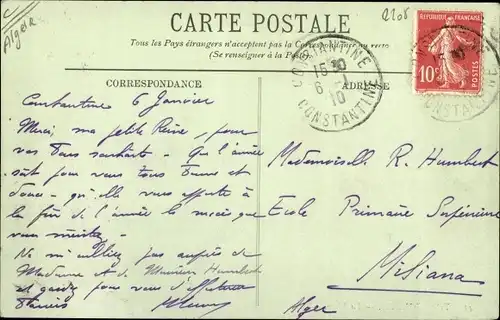 Algérie
2208
CARTE POSTALE
Tous les Pays étrangers n'acceptent pas la Correspondance au recto
(Se renseigner à la Poste)
RÉPUBLIQUE FRANÇAISE
10
CONSTANTINE
15
6 - 1
10
CONSTANTINE
CORRESPONDANCE
ADRESSE
Constantine 6 Janvier
Merci, ma petite Reine, pour
vos bons souhaits - Que l'année
soit pour vous tous bonne et
douce - qu'elle vous apporte à
la fin de l'année le succès que
vous méritez -
Ne m'oubliez pas auprès de
Madame et de Monsieur Humbert
et gardez pour vous d'affectueux
baisers
Mademoiselle R. Humbert
Ecole Primaire Supérieure
Miliana
Alger